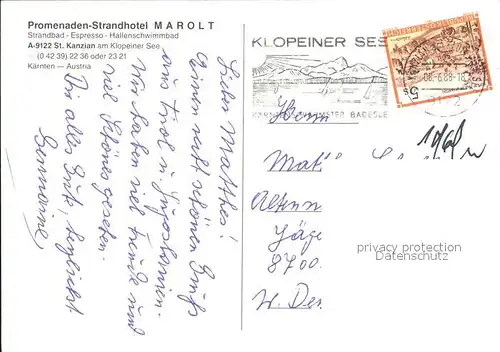 Promenaden-Strandhotel MAROLT
Strandbad - Espresso - Hallenschwimmbad
A-9122 St. Kanzian am Klopeiner See
(0 42 39) 22 36 oder 23 21
Kärnten — Austria
Lieber Matthes!
Einen recht schönen Gruß
aus Tirol u. Jugoslawien.
Wir haben viel Freude und
viel Schönes gesehen.
Dir alles Gute, herzlichst
KLOPEINER SEE
BADESEE
06.-6.89-18
5 S
Herrn
Jäge
8700
W. Deu
privacy protection
Datenschutz